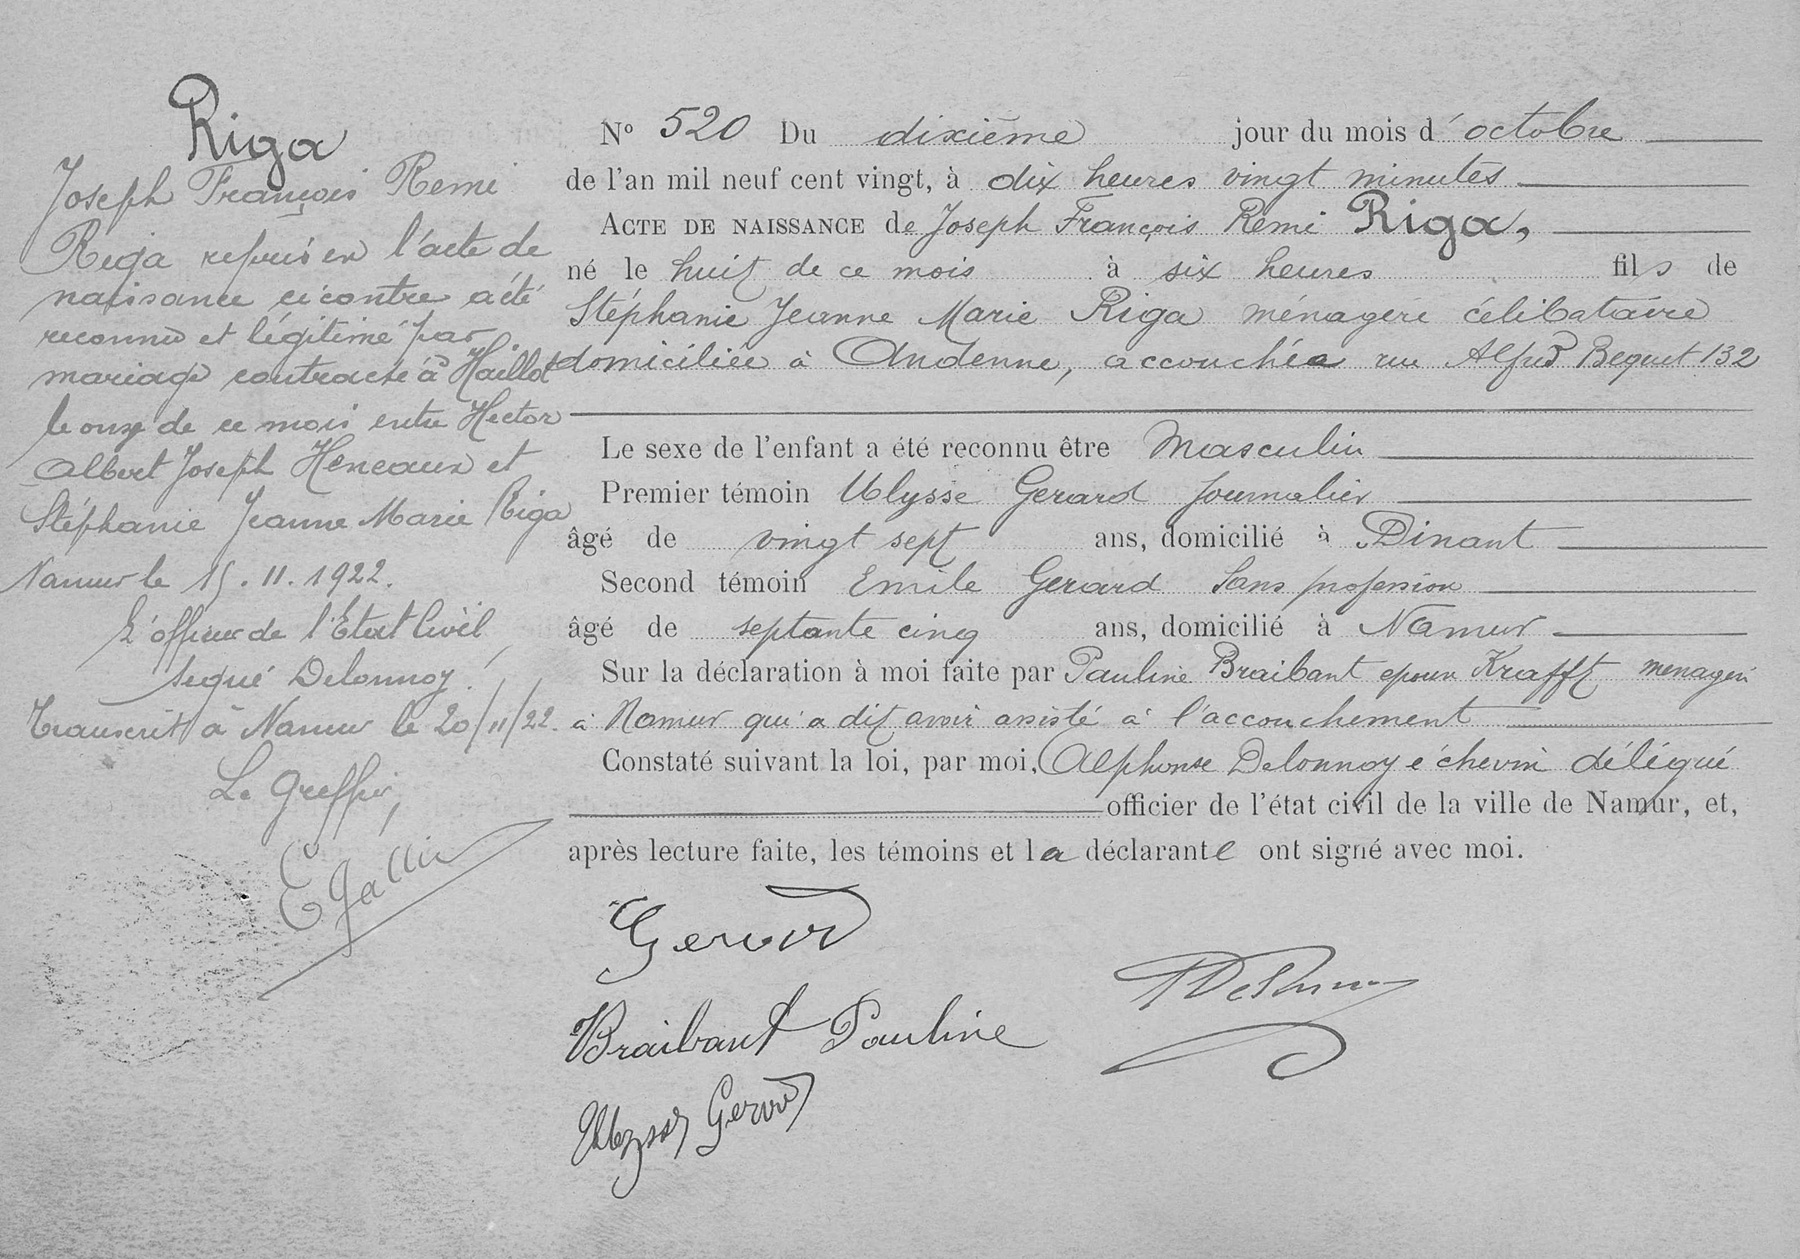 Riga
Joseph François Remi
Riga repris en l'acte de
naissance ci contre a été
reconnu et légitimé par
mariage contracté à Haillot
le onze de ce mois entre Hector
Albert Joseph Heneaux et
Stéphanie Jeanne Marie Riga
Namur le 15.11.1922.
L'officier de l'Etat Civil,
signé Delonnoy.
Transcrit à Namur le 20/11/22.
Le Greffier,
Nº 520 Du dixième jour du mois d'octobre
de l'an mil neuf cent vingt, à dix heures vingt minutes
ACTE DE NAISSANCE de Joseph François Remi Riga,
né le huit de ce mois à six heures fils de
Stéphanie Jeanne Marie Riga ménagère célibataire
domiciliée à Andenne, accouchée rue Alfred Bequet 132
Le sexe de l'enfant a été reconnu être Masculin
Premier témoin Ulysse Gerard journalier
âgé de vingt sept ans, domicilié à Dinant
Second témoin Emile Gerard Sans profession
âgé de septante cinq ans, domicilié à Namur
Sur la déclaration à moi faite par Pauline Braibant epouse Krafft menagère
à Namur qui a dit avoir assisté à l'accouchement
Constaté suivant la loi, par moi, Alphonse Delonnoy échevin délégué
officier de l'état civil de la ville de Namur, et,
après lecture faite, les témoins et la déclarante ont signé avec moi.
Gerard
Braibant Pauline
Ulysse Gerard